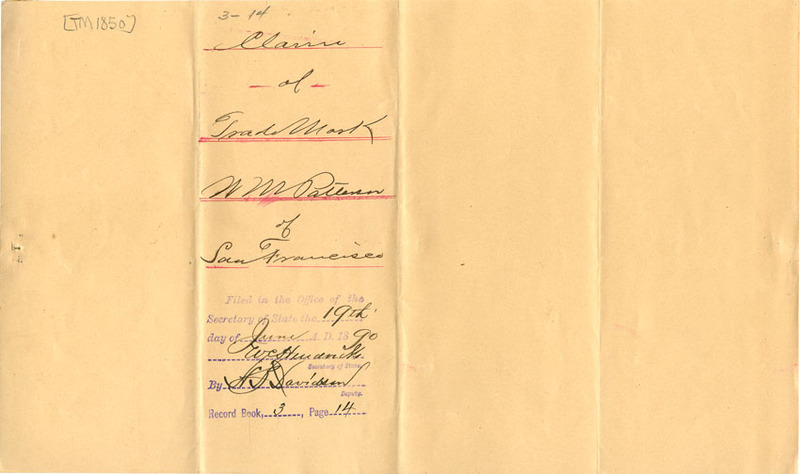 [TM 1850]
3-14
Claim
of
Trade Mark
W M Patterson
of
San Francisco
Filed in the Office of the
Secretary of State the 19th
day of June A. D. 1890
W C Hendricks
Secretary of State.
By Davidson
Deputy.
Record Book, 3, Page 14